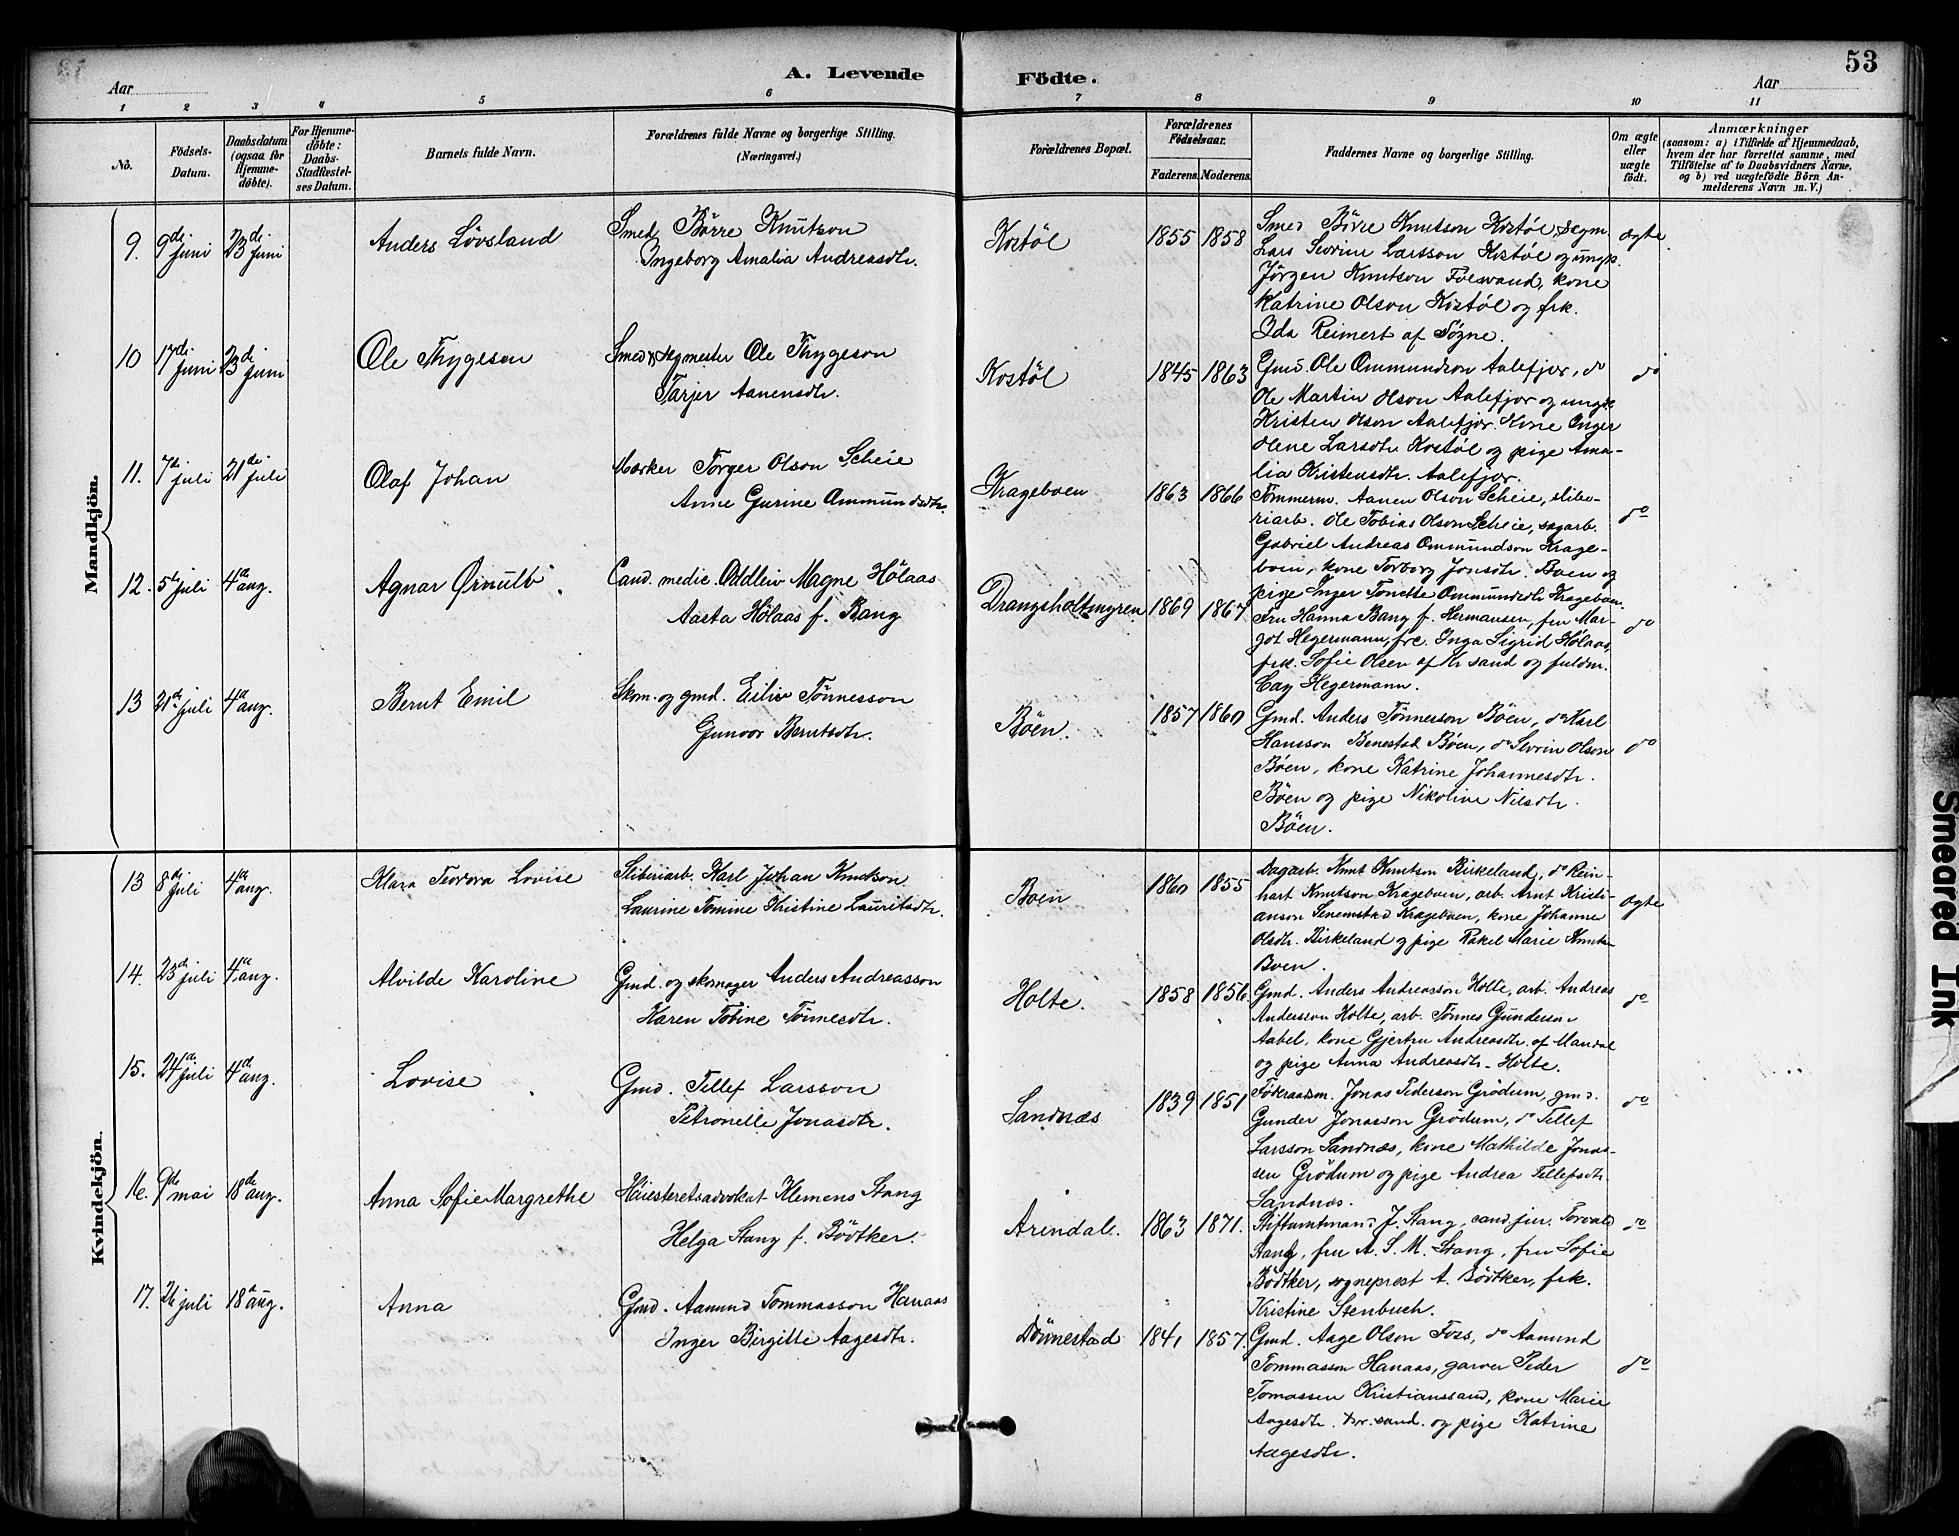 A. Levende Födte.
53
Aar
Aar
1 2 3 4 5 6 7 8 9 10 11
No.
Födsels-Datum.
Daabsdatum (ogsaa for Hjemme-döbte).
For Hjemme-döbte: Daabs-Stadfæstel-ses Datum.
Barnets fulde Navn.
Forældrenes fulde Navne og borgerlige Stilling.
(Næringsvei.)
Forældrenes Bopæl.
Forældrenes Födselsaar.
Faderens. Moderens.
Faddernes Navne og borgerlige Stilling.
Om ægte eller uægte födt.
Anmærkninger
(saasom: a) i Tilfælde af Hjemmedaab,
hvem der har forrettet samme, med
Tilföielse af to Daabsvidners Navne,
og b) ved uægtefödte Börn An-
melderens Navn m. V.)
Mandkjön.
9. 9de juni 23de juni Anders Lövsland
Smed Börre Knutson
Ingeborg Amalia Andreasdtr.
Kostöl 1855 1858
Smed Börre Knutson Kostöl, segm.
Lars Severin Larsson Kostöl og ungk.
Jörgen Knutson Foesvand, kone
Katrine Olson Kostöl og frk.
Ida Reimert af Søgne.
ægte
10 17de juni 23de juni Ole Thygeson
Smed og segmester Ole Thygeson
Tarjer Aanensdtr.
Kostöl 1845 1863
Gmd. Ole Ommundson Aalefjær, do
Ole Martin Olson Aalefjær og ungk
Kristen Olson Aalefjær. Kone Inger
Olene Larsdtr. Kostöl og pige Ama-
lia Kristensdtr. Aalefjær.
do
11. 7de juli 21de juli Olaf Johan
Mærker Torger Olson Scheie
Anne Gurine Ommundsdtr.
Krageboen 1863 1866
Tömmerm. Aanen Olson Scheie, slibe-
riarb. Ole Tobias Olson Scheie, sagarb.
Gabriel Andreas Ommundson Krage-
boen, kone Torborg Jonsdtr. Boen og
pige Inger Tonette Ommundsdtr Krageboen.
do
12. 5te juli 4de aug. Agnar Ørnulb
Cand. medic. Oddleiv Magne Hölaas
Aasta Hölaas f. Bang
Drangsholtmyren 1869 1867
Fru Hanna Bang f. Hermansen, fru Mar-
got Hegermann, frk. Inga Sigrid Hölaas,
frk. Sofie Olsen af Kr sand og fuldm.
Cay Hegermann.
do
13 21de juli 4de aug. Bernt Emil
Skom. og gmd. Eiliv Tönnesson
Gunvor Berntsdtr.
Böen. 1857 1860
Gmd. Anders Tönnesson Böen, do Karl
Hansson Benestad Böen, do Sevrin Olson
Böen, kone Katrine Johannesdtr.
Böen og pige Nikoline Nilsdtr.
Böen.
do
Kvindekjön.
13 8de juli 4de aug. Klara Teodora Lovise
Sliberiarb. Karl Johan Knutson
Laurine Tomine Kristine Lauritsdtr.
Boen 1860 1855
Dagarb. Knut Knutson Birkeland, do Rein-
hart Knutson Krageboen, arb. Arnt Kristi-
anson Senemstad Krageboen, kone Johanne
Olsdtr. Birkeland og pige Rakel Marie Knuts
Boen.
ægte
14. 23de juli 4de aug. Alvilde Karoline
Gmd. og skomager Anders Andreasson
Karen Tobine Tönnesdtr.
Holte. 1858 1856.
Gmd. Anders Andreasson Holte, arb. Andreas
Andersson Holte, arb. Tönnes Gunderson
Aabel, kone Gjertru Andreasdtr. af Mandal
og pige Anna Andreasdtr. Holte.
do
15. 24de juli 4de aug. Lovise
Gmd. Tellef Larsson
Petronelle Jonasdtr.
Sandnæs 1839 1851
Föderaadsm. Jonas Pederson Grödum, gmd.
Gunder Jonasson Grödum, do Tellef
Larsson Sandnæs, kone Mathilde Jonas-
sen Grödum og pige Andrea Tellefsdtr.
Sandnæs.
do
16. 9de mai 18de aug. Anna Sofie Margrethe
Höiesteretsadvokat Klemens Stang
Helga Stang f. Bödtker.
Arendal. 1863 1871.
Stiftamtmand J. Stang, cand. jur. Torvald
Stang, fru A. S. M. Stang, fru Sofie
Bödtker, sogneprest A. Bödtker, frk.
Kristine Stenbuch.
do
17. 26 juli 18de aug. Anna
Gmd. Aamund Tommasson Hanaas
Inger Birgitte Aagesdtr.
Dönnestad 1841 1857.
Gmd. Aage Olson Foss, do Aamund
Tommasson Hanaas, garver Peder
Tomassen Kristianssand, kone Marie
Aagesdtr. Kr.sand. og pige Katrine
Aagesdtr.
do
Smeared Ink